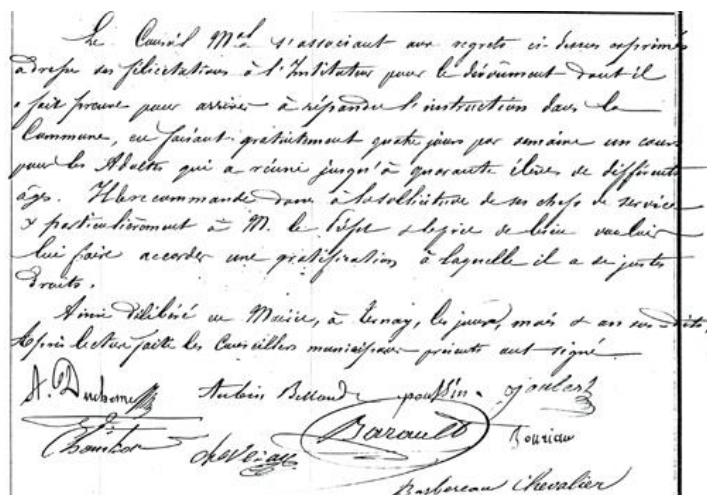 Le Conseil Mal s'associant aux regrets ci-dessus exprimés
adresse ses félicitations à l'Instituteur pour le dévoûment dont il
a fait preuve pour arriver à répandre l'instruction dans la
Commune, en faisant gratuitement quatre jours par semaine un cours
pour les Adultes qui a réuni jusqu'à quarante élèves de différents
âges. Il le recommande donc à la sollicitude de ses chefs de service
& particulièrement à M. le Préfet & le prie de bien vouloir
lui faire accorder une gratification à laquelle il a de justes
droits.
Ainsi délibéré en Mairie, à Ternay, les jours, mois & an sus-dits,
Après lecture faite les Conseillers municipaux présents ont signé.
A. Duchesne Aubin Billaud poussin Joubert
Barault
Barbereau Chevalier